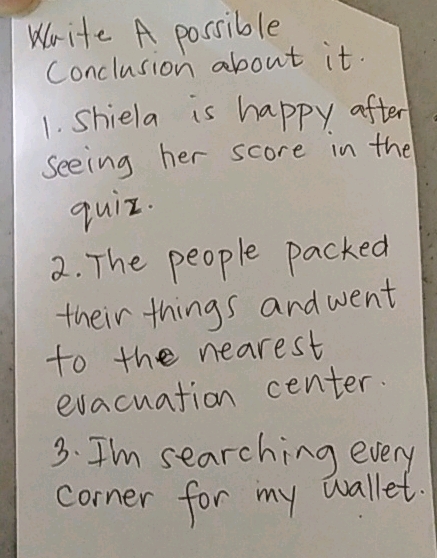 Write A possible
Conclusion about it.
1. Shiela is happy after
seeing her score in the
quiz.
2. The people packed
their things and went
to the nearest
evacuation center.
3. I'm searching every
corner for my wallet.